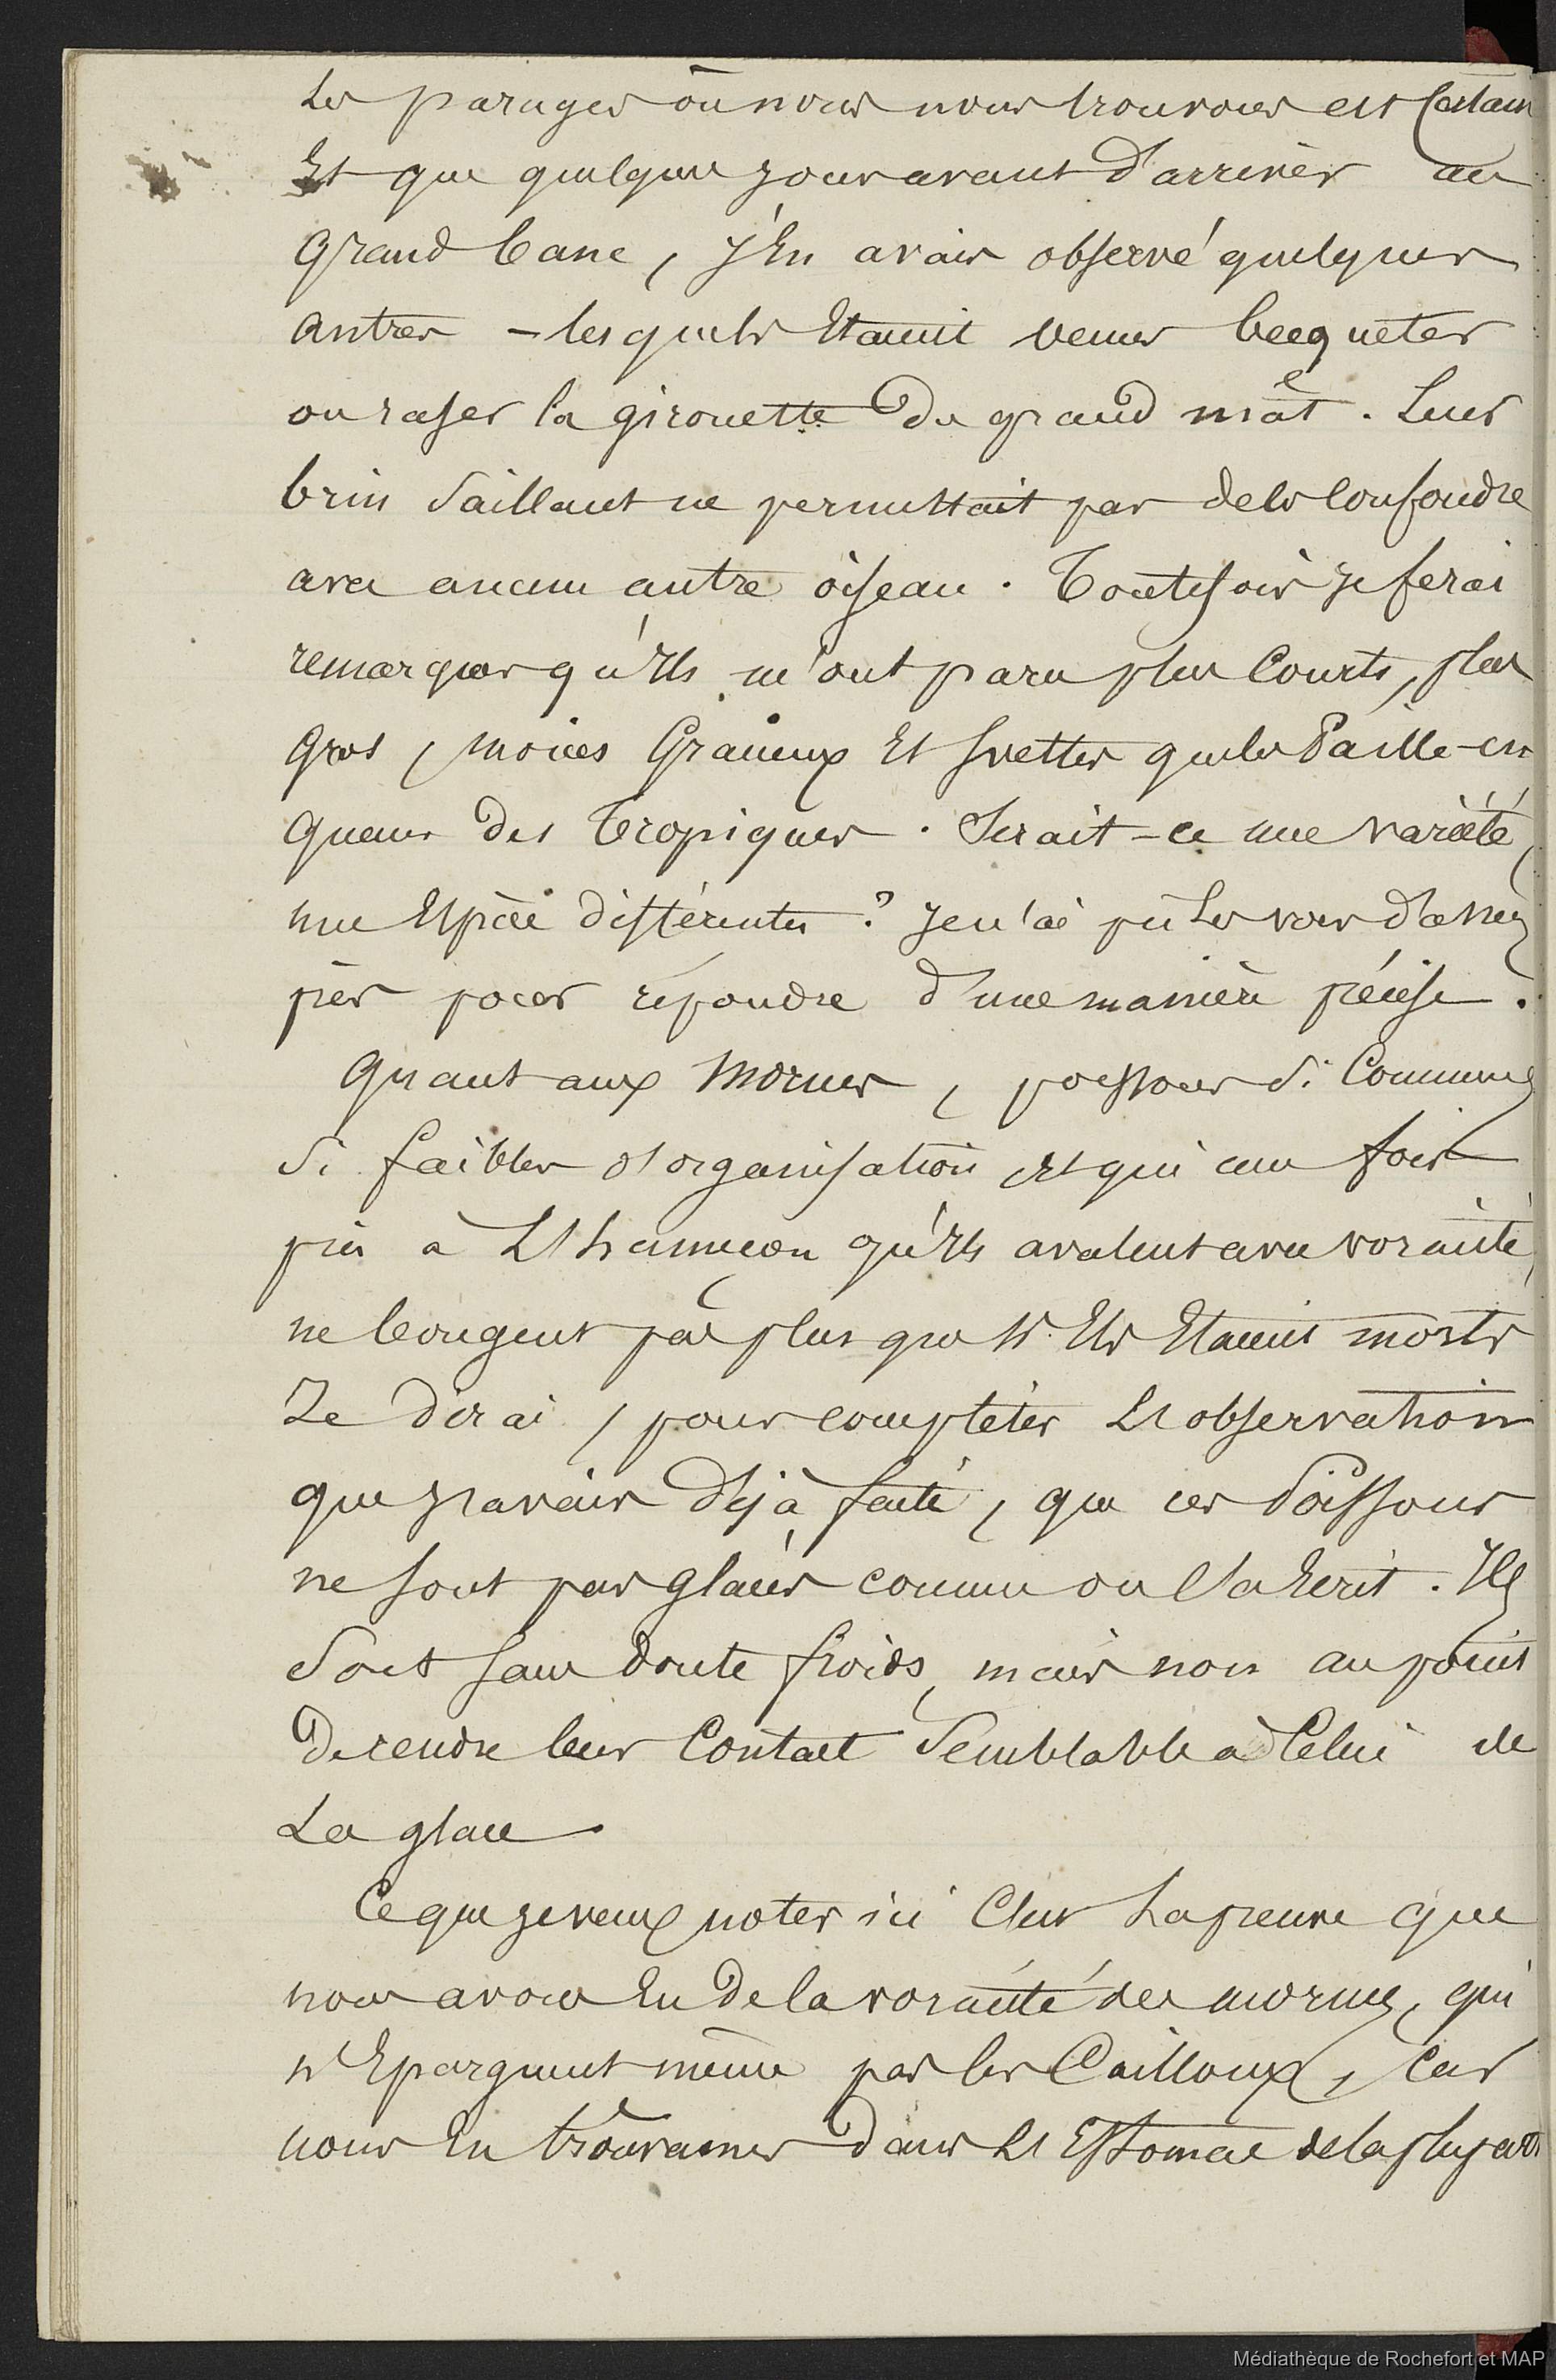 les parages où nous nous trouvons est Certain
Et que quelques jours avant d'arriver au
grand banc, j'En avais observé quelques
autres - lesquels Etaient venus becqueter
ou raser la girouette du grand mât. Leur
brin saillant ne permettait pas de les confondre
avec aucun autre oiseau. Toutefois je ferai
remarquer qu'Ils m'ont paru plus Courts, plus
gros, moins Gracieux Et sveltes que les Paille-en
queues des tropiques. Serait-ce une variété,
une Espèce différentes? Je n'ai pu les voir d'assez
près pour répondre d'une manière précise.
Quant aux Morues, poissons si Communs
si faibles d'organisation et qui une fois
pris à L'hameçon qu'Ils avalent avec voracité,
ne bougent pas plus que s'Ils Etaient morts
Je dirai, pour compléter L'observation
que j'avais déjà faite, que ces Poissons
ne sont pas glacés comme on l'a Ecrit. Ils
sont sans doute froids, mais non au point
De rendre leur Contact semblable à Celui de
La glace.
Ce que je veux noter ici C'est La preuve que
nous avons Eu De la voracité des morues, qui
n'Epargnent même pas les Cailloux, Car
nous En trouvames Dans L'Estomac de la plupart
Médiathèque de Rochefort et MAP